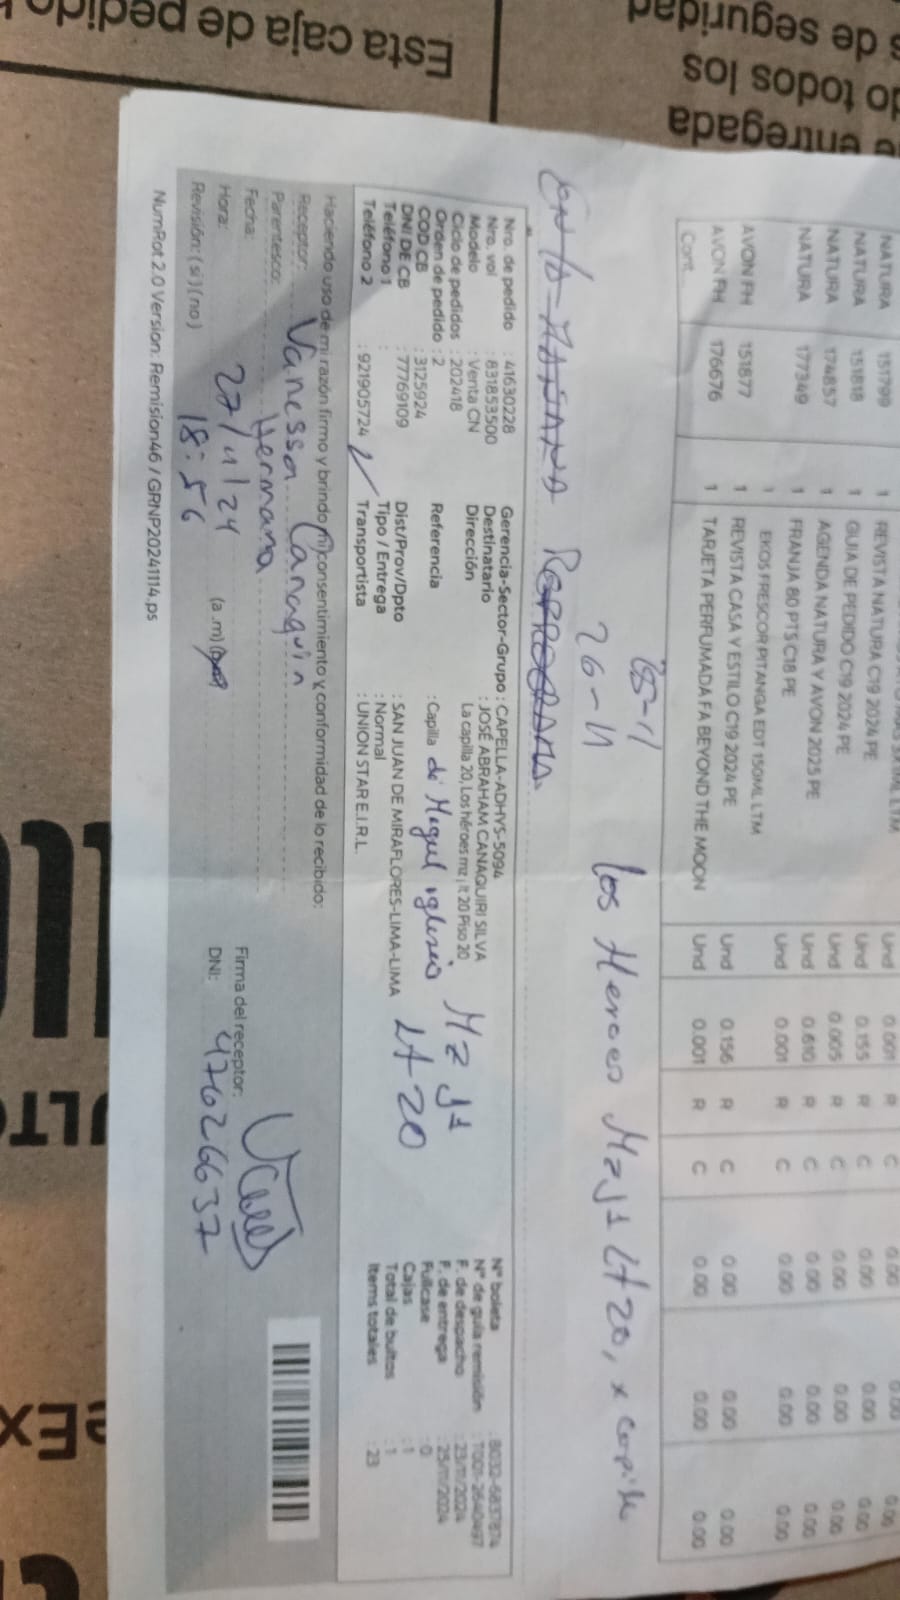 Esta caja de pedido
s de seguridad
do todos los
e entregada
NATURA 151799 1 REVISTA NATURA C19 2024 PE Und 0.001 R C 0.00 0.00 0.00
NATURA 151818 1 GUIA DE PEDIDO C19 2024 PE Und 0.155 R C 0.00 0.00 0.00
NATURA 174857 1 AGENDA NATURA Y AVON 2025 PE Und 0.005 R C 0.00 0.00 0.00
NATURA 177349 1 FRANJA 80 PTS C18 PE Und 0.610 R C 0.00 0.00 0.00
1 EKOS FRESCOR PITANGA EDT 150ML LTM Und 0.001 R C 0.00 0.00 0.00
AVON FH 151877 1 REVISTA CASA Y ESTILO C19 2024 PE Und 0.156 R C 0.00 0.00 0.00
AVON FH 176676 1 TARJETA PERFUMADA FA BEYOND THE MOON Und 0.001 R C 0.00 0.00 0.00
Cont.
25-11
26-11 Los Heroes Mz J1 Lt 20, x
Nro. de pedido : 41630228 Gerencia-Sector-Grupo : CAPELLA-ADHVS-5094
Nro. vol : 831853500 Destinatario : JOSÉ ABRAHAM CANAQUIRI SILVA
Modelo : Venta CN Dirección La capilla 20, Los héroes mz j lt 20 Piso 20
Ciclo de pedidos : 202418
Orden de pedido : 2 Referencia : Capilla de Miguel iglesia Mz J1
COD CB : 3125924 Lt 20
DNI DE CB : 77769109 Dist/Prov/Dpto : SAN JUAN DE MIRAFLORES-LIMA-LIMA
Teléfono 1 : Tipo / Entrega : Normal
Teléfono 2 : 921905724 Transportista : UNION STAR E.I.R.L.
N° boleta : B032-6837874
N° de guía remisión : T001-26404497
F. de despacho : 23/11/2024
F. de entrega : 25/11/2024
Fullcase : 0
Cajas : 1
Total de bultos : 1
Items totales : 23
Haciendo uso de mi razón firmo y brindo mi consentimiento y conformidad de lo recibido:
Receptor: Vanessa Canaquiri
Parentesco: Hermana
Fecha: 27/11/24
Hora: 18:56 (a.m)
Revisión: (si) (no)
Firma del receptor:
DNI: 47626637
NumRot 2.0 Version: Remision46 / GRNP20241114.ps